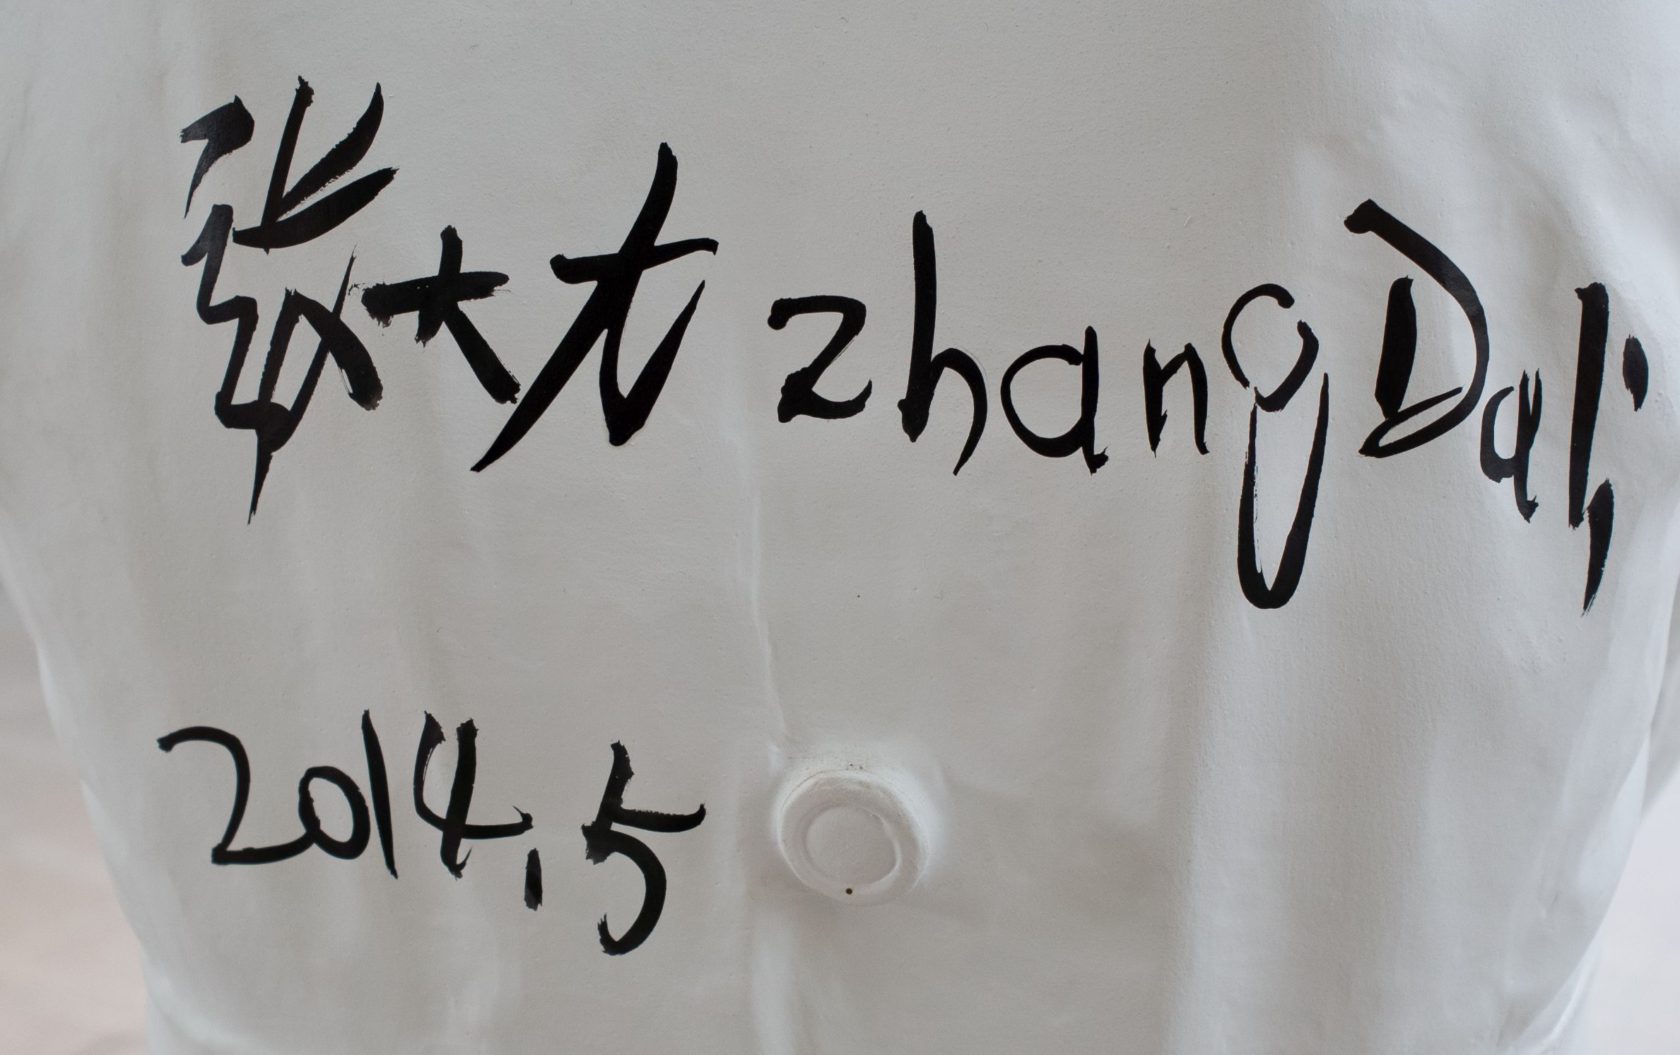 张大力 zhang Dali
2014.5